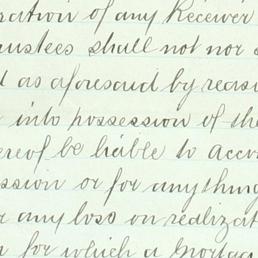 ration of any Receiver
rustees shall not nor
d as aforesaid by reaso
into possession of the
ereof be liable to acco
ssion or for anything
r any loss on realizat
for which a mortga